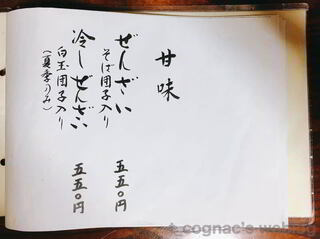 甘味
ぜんざい 五五〇円
そば団子入り
冷しぜんざい 五五〇円
白玉団子入り
(夏季のみ)
cognac's weblog